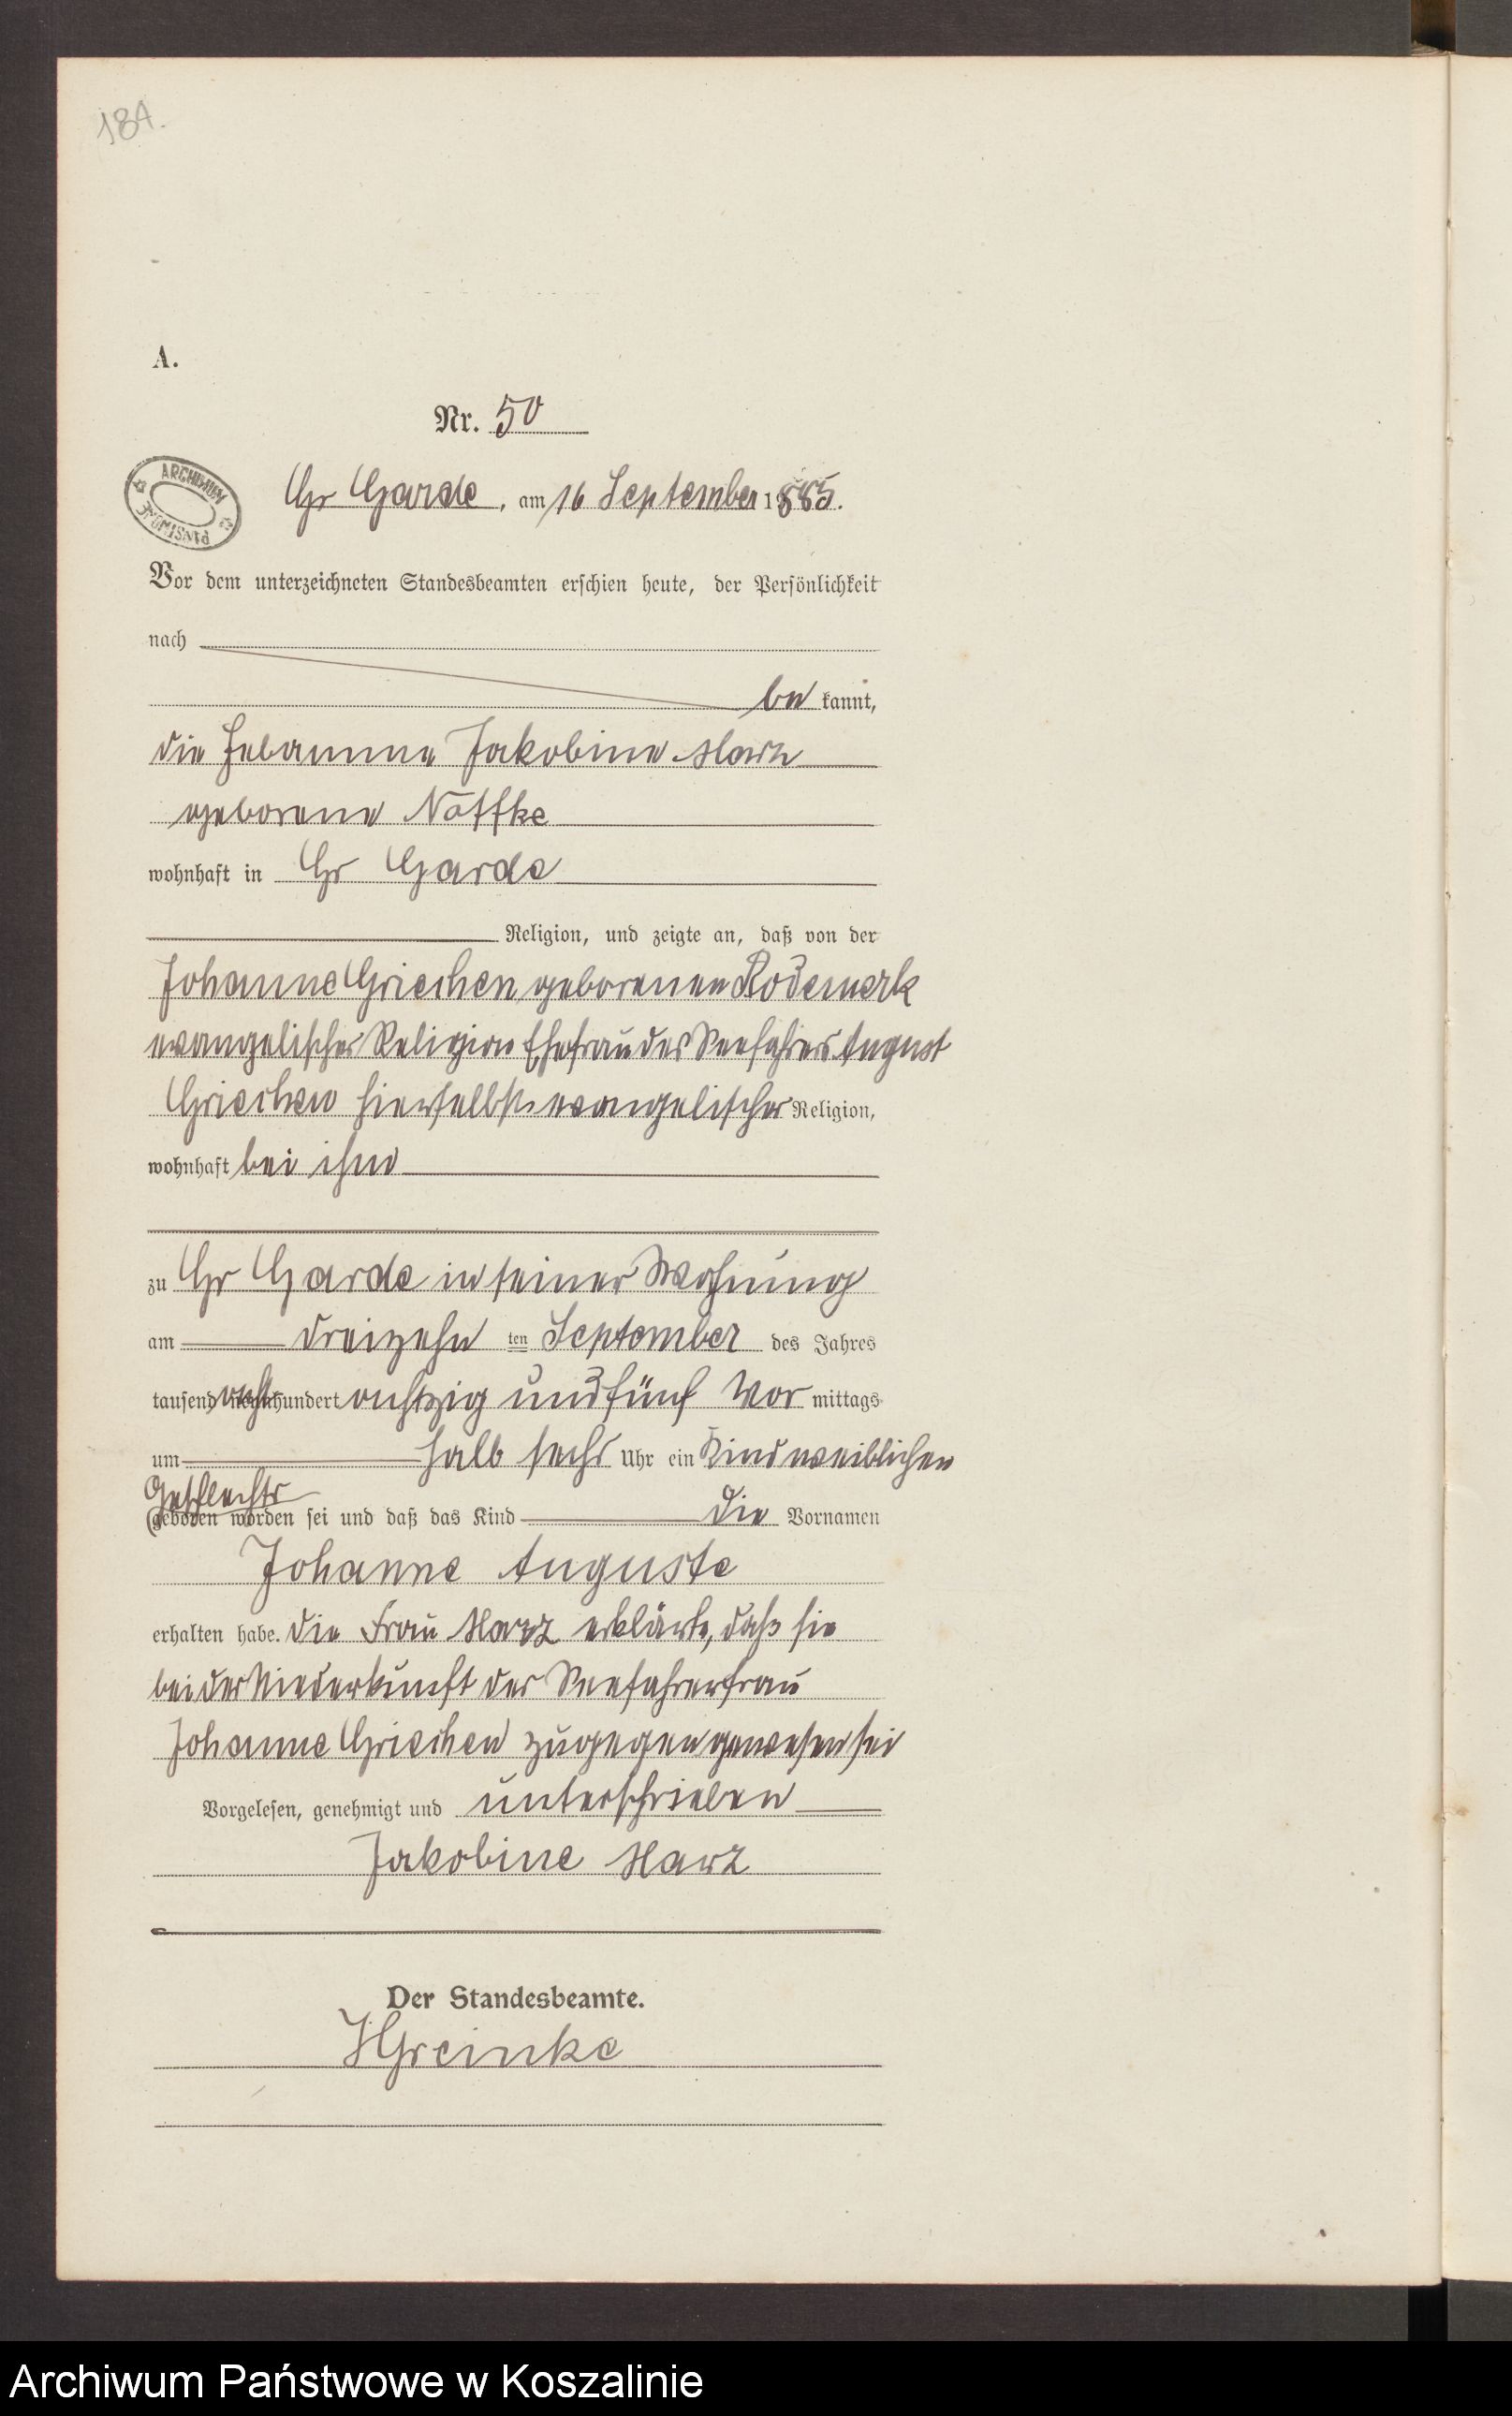 184.
A.
Nr. 50
ARCHIWUM PAŃSTWOWE
Gr Garde, am 16 September 1885.
Vor dem unterzeichneten Standesbeamten erschien heute, der Persönlichkeit
nach
be kannt,
die Hebamme Jakobine Harz
geborene Noffke
wohnhaft in Gr Garde
Religion, und zeigte an, daß von der
Johanne Griechen geborenen Rodemerk
evangelischer Religion Ehefrau des Seefahrers August
Griechen hierselbst evangelischer Religion,
wohnhaft bei ihm
zu Gr Garde in seiner Wohnung
am dreizehn ten September des Jahres
tausend acht hundert achtzig und fünf Vor mittags
um halb sechs Uhr ein Kind weiblichen
Geschlechts
geboren worden sei und daß das Kind die Vornamen
Johanne Auguste
erhalten habe. Die Frau Harz erklärte, daß sie
bei der Niederkunft der Seefahrerfrau
Johanne Griechen zugegen gewesen sei
Vorgelesen, genehmigt und unterschrieben
Jakobine Harz
Der Standesbeamte.
HGreinke
Archiwum Państwowe w Koszalinie